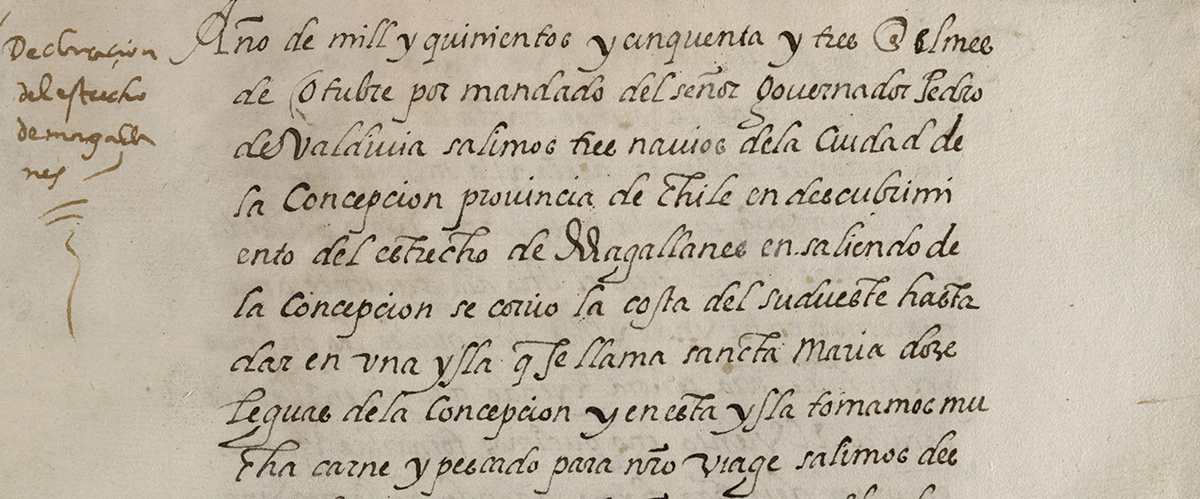 Declaracion
del estrecho
de magalla
nes
Año de mill y quinientos y cinquenta y tres @ el mes
de Otubre por mandado del señor Governador Pedro
de Valdivia salimos tres navios dela Ciudad de
la Concepcion provincia de Chile en descubrimi
ento del estrecho de Magallanes en saliendo de
la Concepcion se corrio la costa del sudueste hasta
dar en una ysla q se llama sancta Maria doze
leguas dela Concepcion y en esta ysla tomamos mu
cha carne y pescado para nro viage salimos des